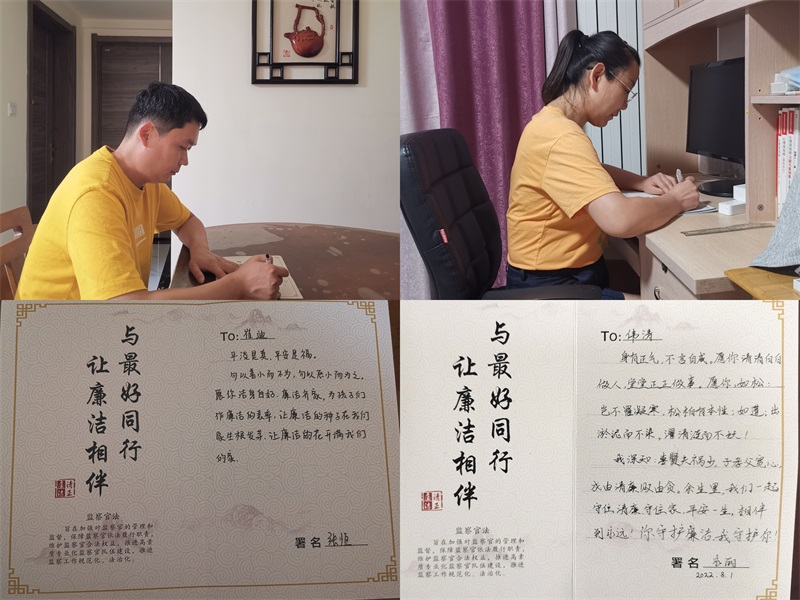 与最好同行
让廉洁相伴
清正
廉洁
监察官法
旨在加强对监察官的管理和
监督,保障监察官依法履行职责,
维护监察官合法权益,推进高素
质专业化监察官队伍建设,推进
监察工作规范化、法治化。
To: 崔迪
平淡是真,平安是福。
勿以善小而不为,勿以恶小而为之。
愿你洁身自好,廉洁齐家,为孩子们
作廉洁的表率,让廉洁的种子在我们
家生根发芽,让廉洁的花开满我们
的家。
署名 张恒
与最好同行
让廉洁相伴
清正
廉洁
监察官法
旨在加强对监察官的管理和
监督,保障监察官依法履行职责,
维护监察官合法权益,推进高素
质专业化监察官队伍建设,推进
监察工作规范化、法治化。
To: 伟涛
身有正气,不言自威。愿你清清白白
做人,堂堂正正做事。愿你,如松:
岂不罹凝寒,松柏有本性;如莲:出
淤泥而不染,濯清涟而不妖!
我深知:妻贤夫祸少,子孝父宽心,
成由清廉败由贪。余生里,我们一起
守住清廉守住家,平安一生,相伴
到永远!你守护廉洁,我守护你!
署名
2022.8.1